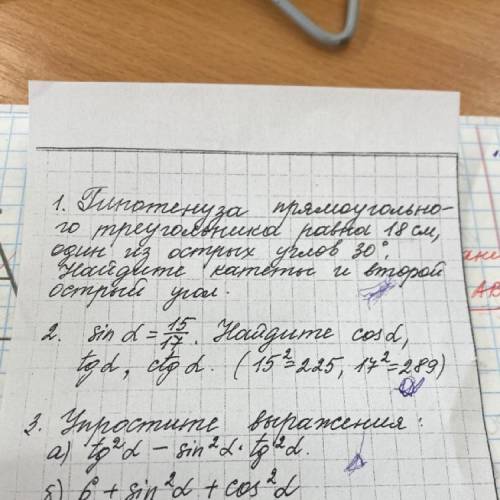 1. Гипотенуза прямоугольно-
го треугольника равна 18 см,
один из острых углов 30°.
Найдите катеты и второй
острый угол.
2. sin α = 15/17. Найдите cos α,
tg α, ctg α. (15²=225, 17²=289)
3. Упростите выражения:
а) tg²α − sin²α · tg²α.
б) 6 + sin²α + cos²α